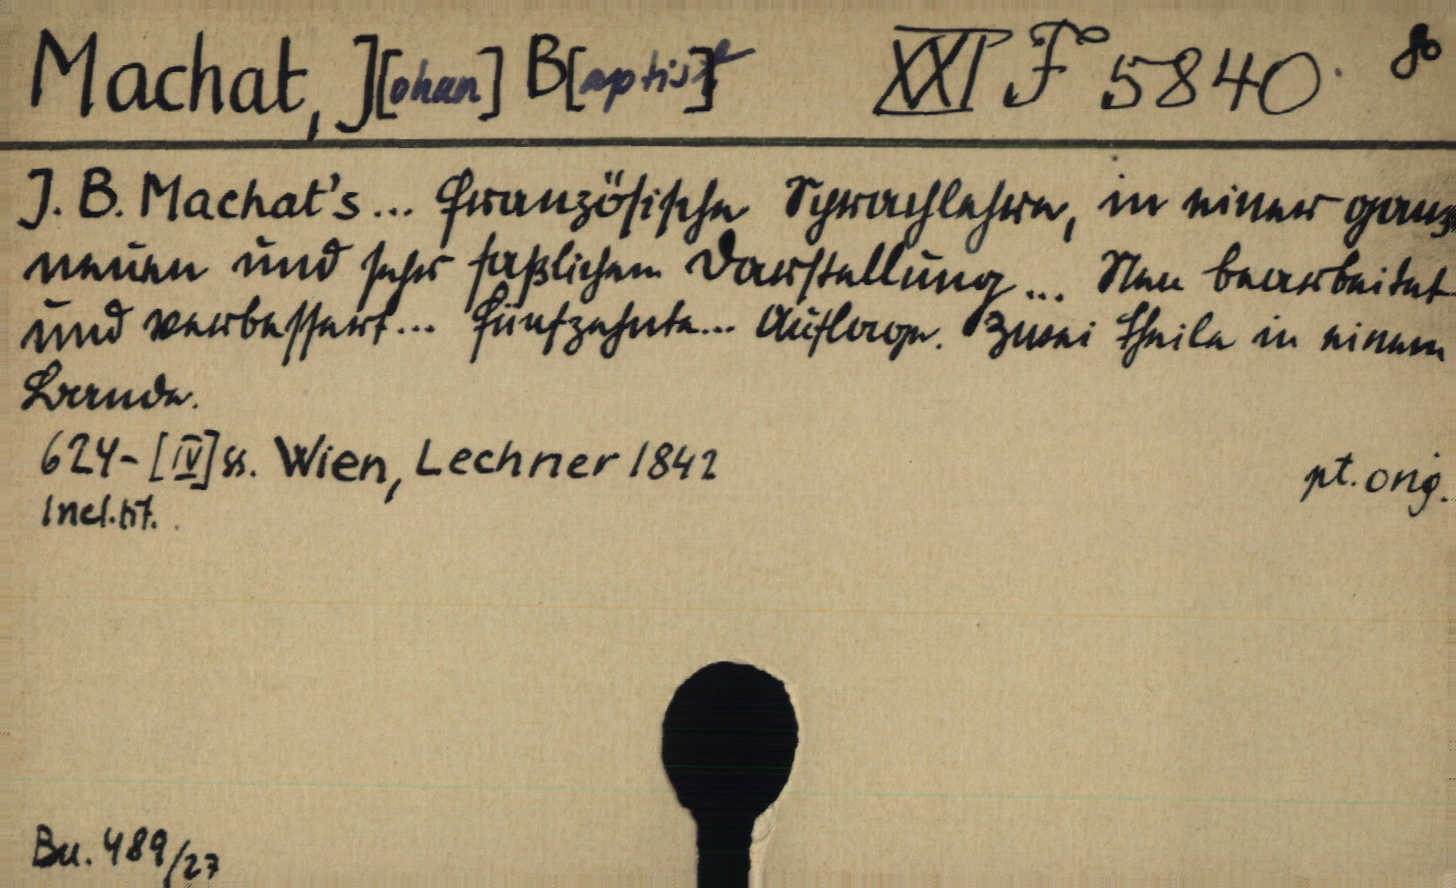 Machat, J[ohan] B[aptist] XXI F 5840. 8o
J. B. Machat's... Französische Sprachlehre, in einer ganz
neuen und sehr faßlichen Darstellung... Neu bearbeitet
und verbessert... Fünfzehnte... Auflage. Zwei Theile in einem
Bande.
624-[IV] ss. Wien, Lechner 1842 pt. orig.
Incl. tit.
Bu. 489/27